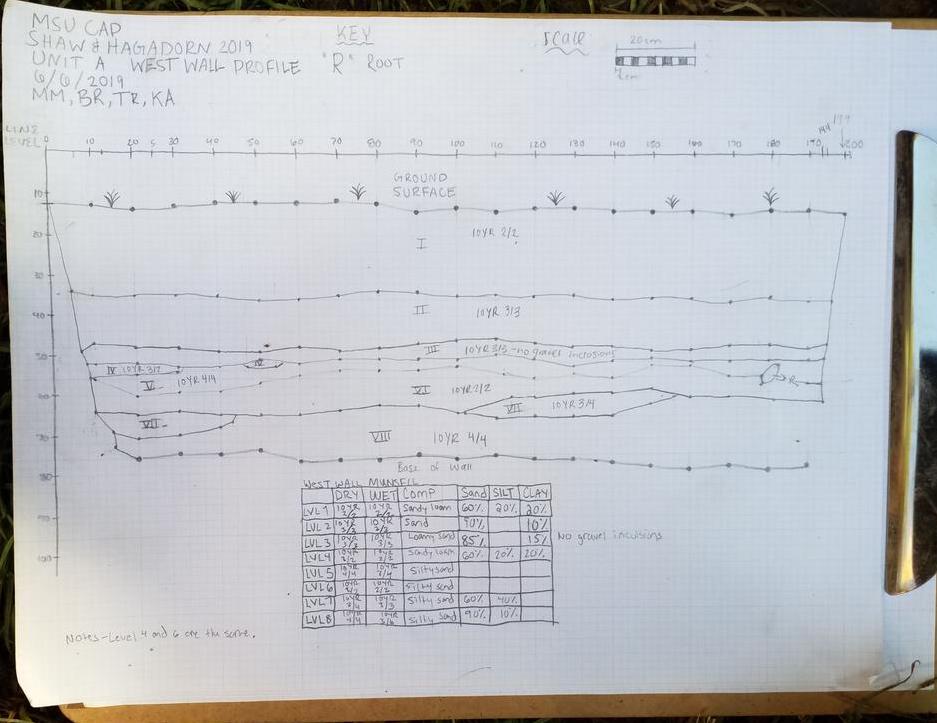 MSU CAP
SHAW & HAGADORN 2019
UNIT A WEST WALL PROFILE
6/6/2019
MM, BR, TR, KA
KEY
"R" ROOT
SCALE
20cm
LINE LEVEL
0 10 20 S 30 40 50 60 70 80 90 100 110 120 130 140 150 160 170 180 190 194 199 200
10
20
30
40
50
60
70
80
90
100
GROUND
SURFACE
10YR 2/2
I
II 10YR 3/3
III 10YR 3/3 - no gravel inclusions
IV 10YR 3/2 IV
V 10YR 4/4
VI 10YR 2/2
R
VII 10YR 3/4
VII
VIII 10YR 4/4
Base of Wall
West WALL MUNSELL
DRY WET COMP Sand SILT CLAY
LVL 1 10YR 2/2 10YR 2/2 Sandy loam 60% 20% 20%
LVL 2 10YR 3/3 10YR Sand 90% 10%
LVL 3 10YR 3/3 10YR 3/3 Loamy sand 85% 15% No gravel inclusions
LVL 4 10YR 3/2 10YR 2/2 Sandy loam 60% 20% 20%
LVL 5 10YR 4/4 10YR 3/4 Silty sand
LVL 6 10YR 2/2 10YR 2/2 Silty sand
LVL 7 10YR 3/4 10YR 3/3 Silty sand 60% 40%
LVL 8 10YR 4/4 10YR 3/6 Silty sand 90% 10%
Notes - Level 4 and 6 are the same.